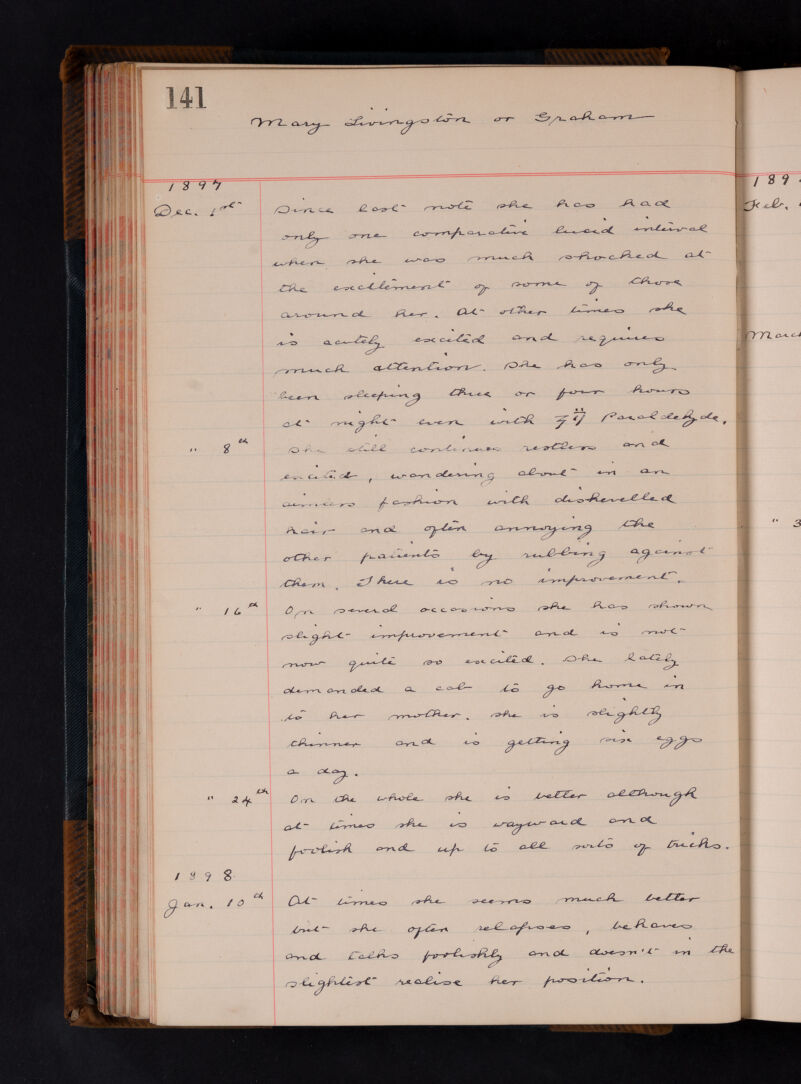 141
Mary Livingston or Graham
1897
Dec. 1st Since last note she has had
only one comparative lucid interval
when she was much shocked at
the excitement of some of those
around her. At other times she
is acutely excited and requires
much attention. She has only
been sleeping three or four hours
at night even with ʒij Paraldehyde.
" 8th She still continues restless and
excited, wandering about in an
aimless fashion with dishevelled
hair and often annoying the
other patients by rubbing against
them. There is no improvement.
" 16th On several occasions she has shown
slight improvement and is not
now quite so excited. She lately
demanded a cab to go home in
to her mother. She is slightly
thinner and is getting six eggs
a day.
" 24th On the whole she is better although
at times she is wayward and
foolish and up to all sorts of tricks.
1898
Jan. 10th At times she seems much better
but she often relapses, behaves
and talks foolishly and doesn't in the
slightest realise her position.
189
Feb.
March
" 3